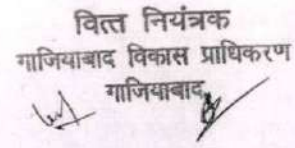 वित्त नियंत्रक
गाजियाबाद विकास प्राधिकरण
गाजियाबाद